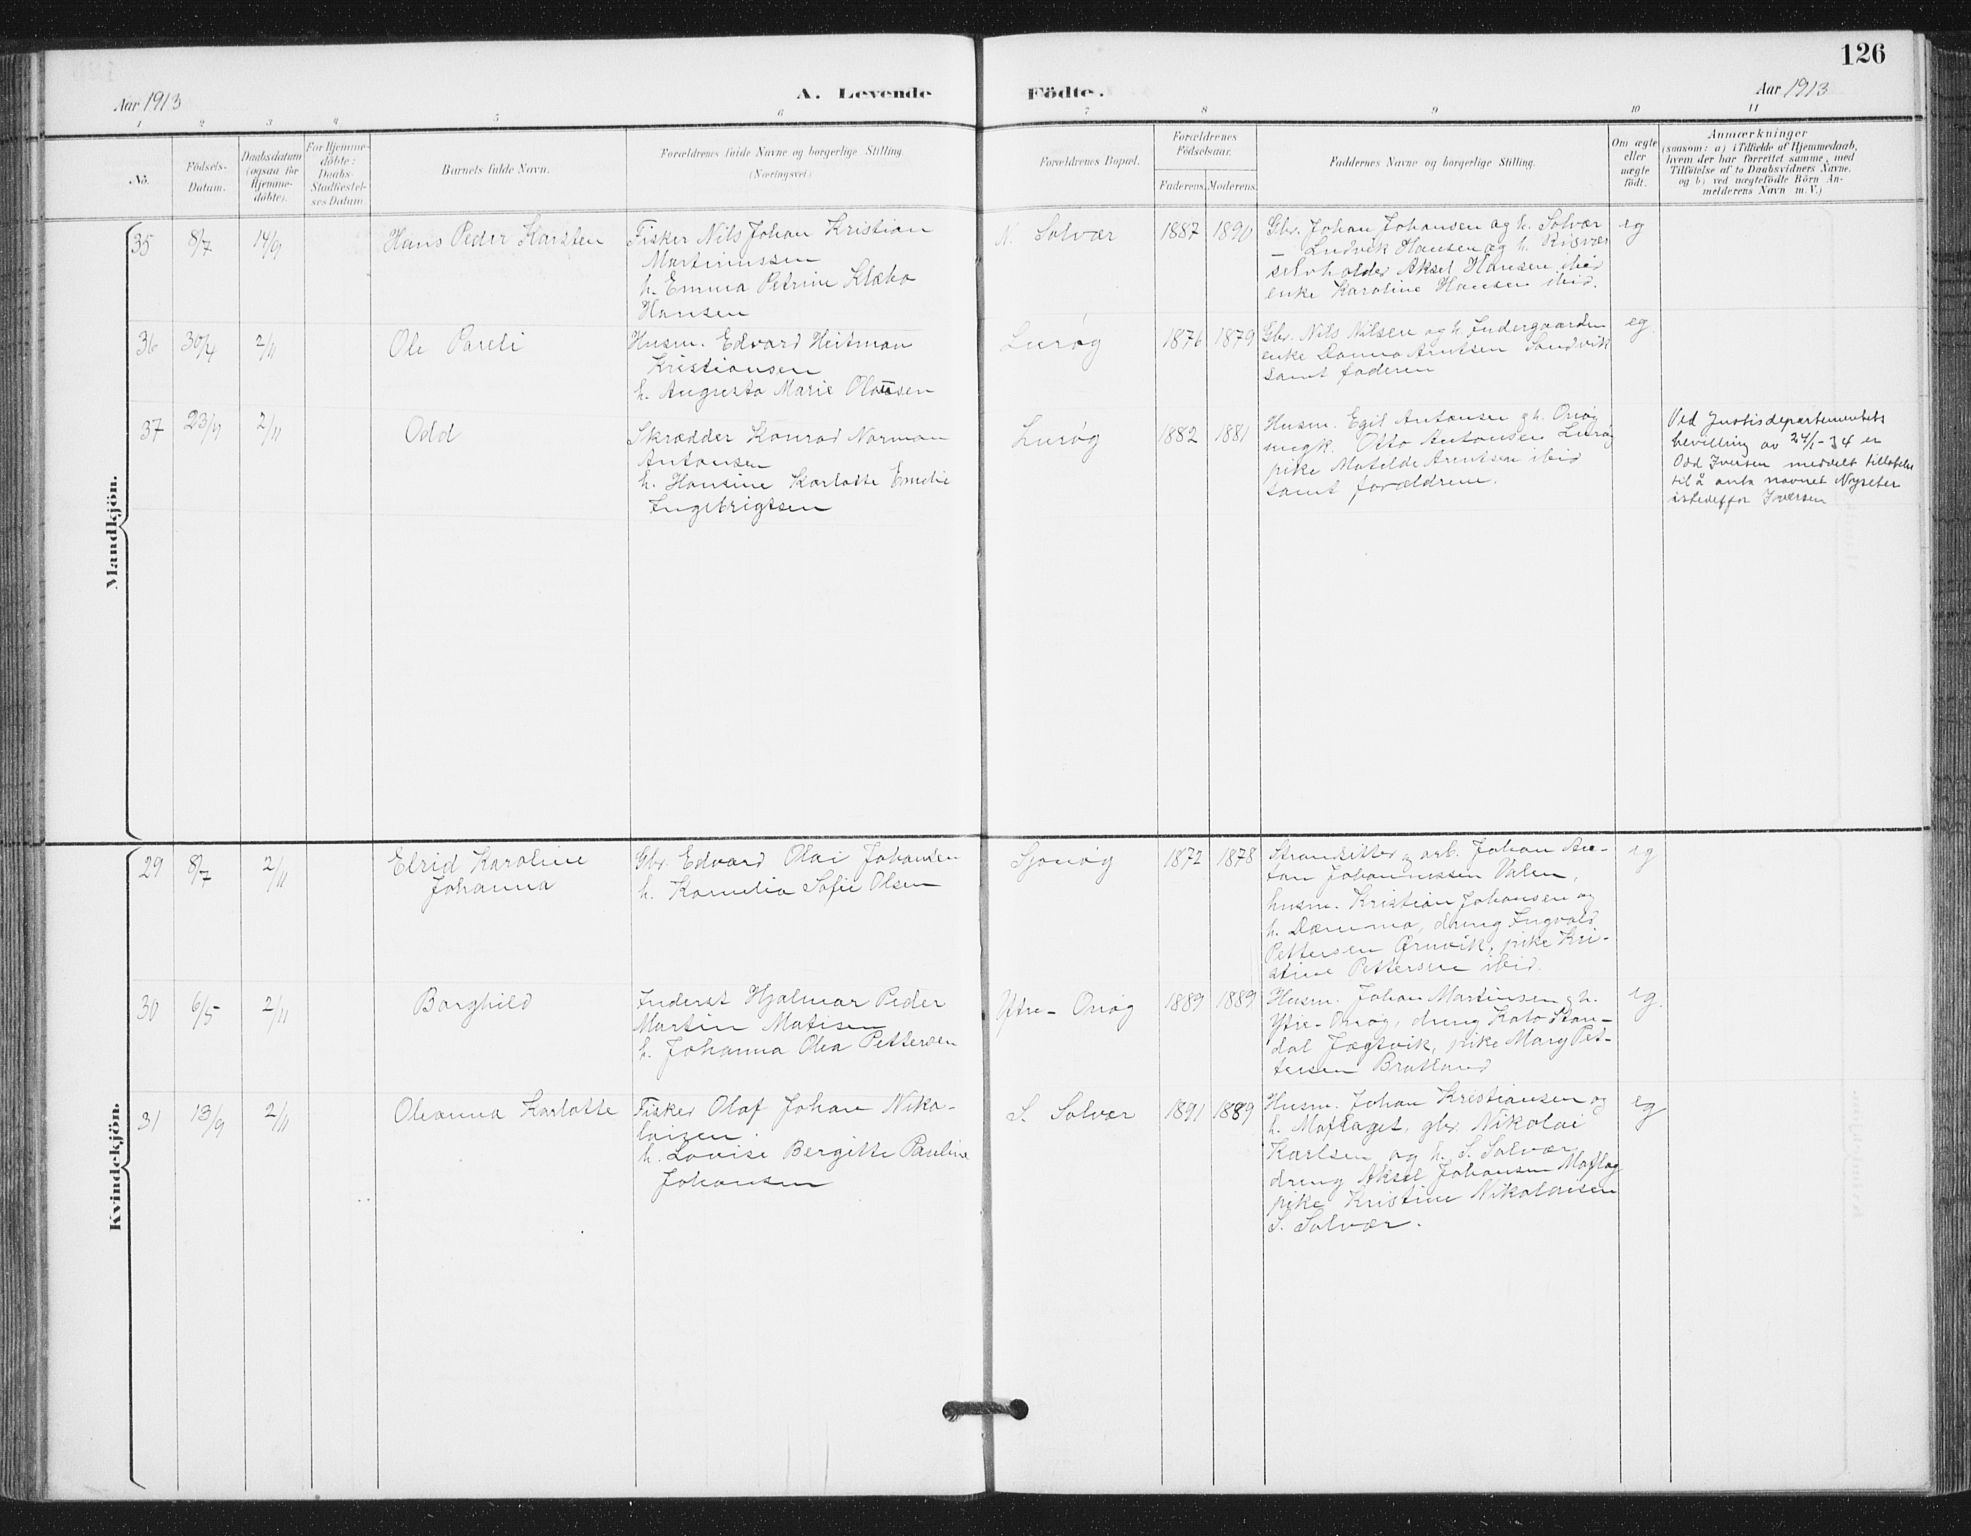 126
Aar 1913
A. Levende
Födte.
Aar 1913
1 2 3 4 5 6 7 8 9 10 11
No.
Födsels-
Datum.
Daabsdatum
(ogsaa for
Hjemme-
döbte).
For Hjemme-
döbte:
Daabs-
Stadfæstel-
ses Datum
Barnets fulde Navn.
Forældrenes fulde Navne og borgerlige Stilling.
(Næringsvei)
Forældrenes Bopæl.
Forældrenes
Födselsaar.
Faderens. Moderens.
Faddernes Navne og borgerlige Stilling.
Om ægte
eller
uægte
födt.
Anmærkninger
(saasom: a) i Tilfælde af Hjemmedaab,
hvem der har forrettet samme, med
Tilföielse af to Daabsvidners Navne,
og b) ved uægtefödte Börn An-
melderens Navn m. V.)
Mandkjön.
35 8/7 14/9 Hans Peder Karsten
Fisker Nils Johan Kristian
Martinussen
h. Emma Petrine Klæbo
Hansen
N. Solvær 1887 1890
Gbr. Johan Johansen og h. Solvær
– Ludvik Hansen og h.
selvholder Aksel Hansen ibid
enke Karoline Hansen ibid.
eg
36 30/4 2/11 Ole Pareli
Husm. Edvard Heitman
Kristiansen
h. Augusta Marie Olaussen
Lurøy 1876 1879
Gbr. Nils Nilsen og h. Indergaarden
enke Danna Arntsen Sandvik
samt faderen
eg.
37 23/9 2/11 Odd
Skrædder Konrad Norman
Antonsen
h. Hansine Karlotte Emelie
Ingebrigtsen
Lurøy 1882 1881
Husm. Egil Antonsen og h. Onøy
ungk. Otto Antonsen Lurøy
pike Matilde Arentsen ibid
samt forældrene.
Ved Justisdepartementets
bevilling av 24/1-34 er
Odd Iversen meddelt tillatelse
til å anta navnet Nyseter
istedetfor Iversen
Kvindekjön.
29 8/7 2/11 Elrid Karoline
Johanna
Gbr. Edvard Olai Johansen
h. Kornelia Sofie Olsen
Sjonøy 1872 1878
Strandsitter og arb. Johan Are-
tan Johannessen Valen,
husm. Kristian Johansen og
h. Dæmma, dreng Ingvald
Pettersen Ørnvik, pike Kri-
stine Pettersen ibid.
eg
30 6/5 2/11 Borghild
Inderst Hjalmar Peder
Martin Matisen
h. Johanna Olea Pettersen
Ytre-Onøy 1889 1889
Husm. Johan Martinsen og h.
Ytre-Onøy, dreng Kato Stan-
dal Jægtvik, pike Mary Pet-
tersen Bratland
eg.
31 13/9 2/11 Oleanna Karlotte
Fisker Olaf Johan Niko-
laisen.
h. Lovise Bergitte Pauline
Johansen
S. Solvær 1891 1889
Husm. Johan Kristiansen og
h. Moflaget, gbr. Nikolai
Karlsen og h. S. Solvær,
dreng Aksel Johansen Moflag
pike Kristine Nikolaisen
S. Solvær.
eg